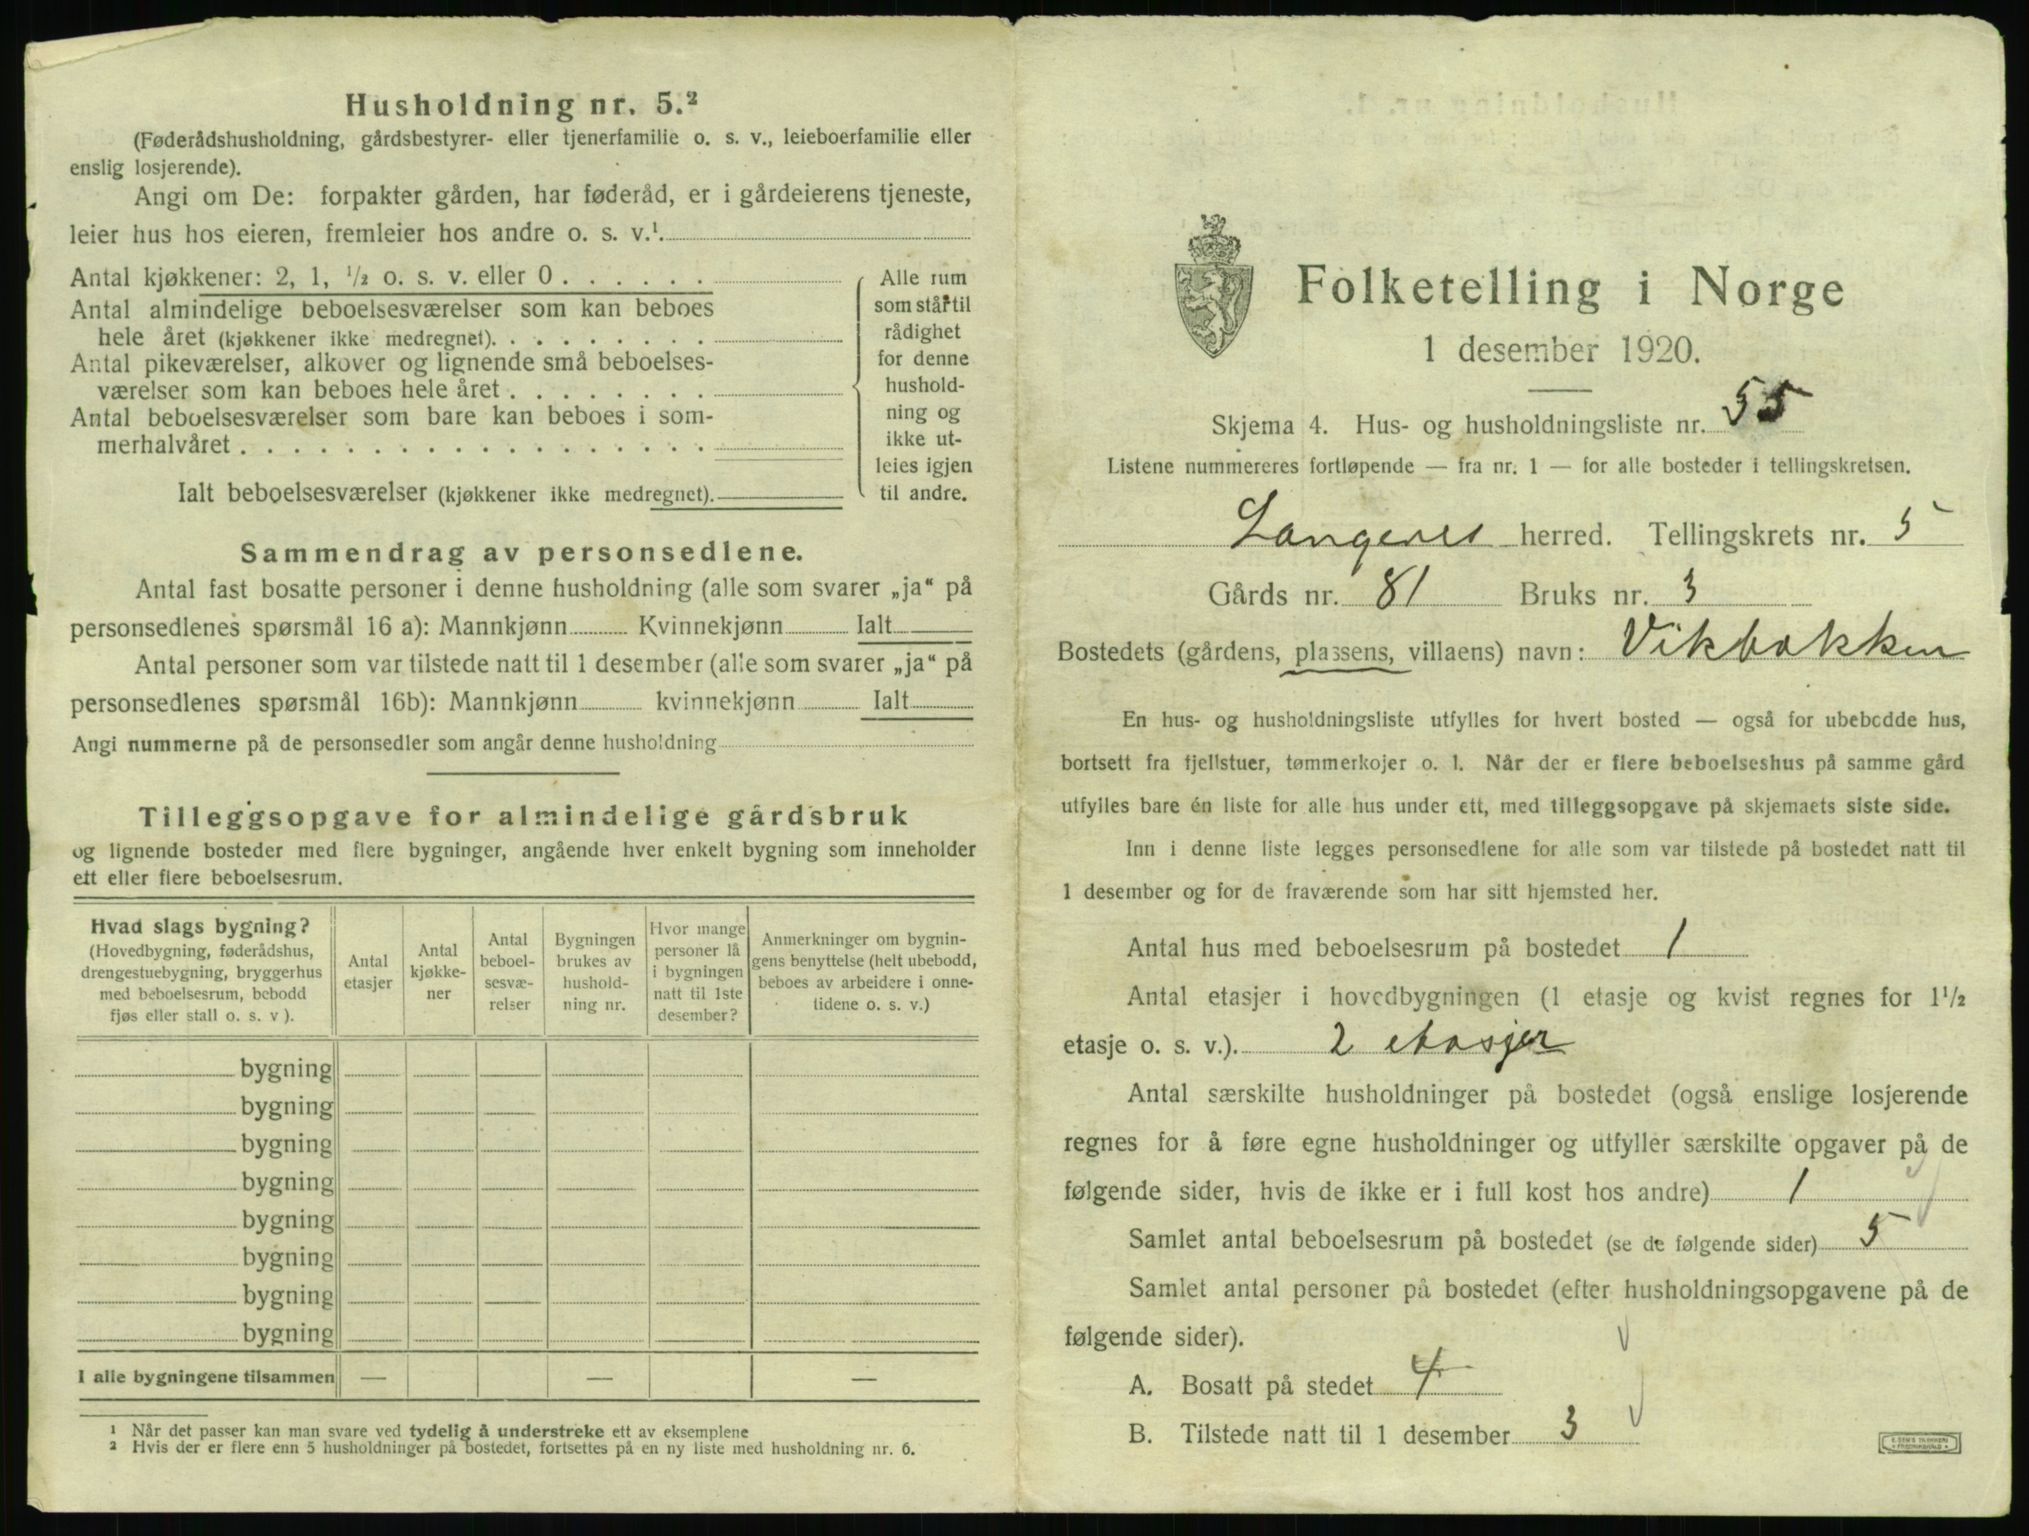 Husholdning nr. 5.²
(Føderådshusholdning, gårdsbestyrer- eller tjenerfamilie o. s. v., leieboerfamilie eller
enslig losjerende).
Angi om De: forpakter gården, har føderåd, er i gårdeierens tjeneste,
leier hus hos eieren, fremleier hos andre o. s. v.¹.
Antal kjøkkener: 2, 1, ½ o. s. v. eller 0 . . . . . .
Antal almindelige beboelsesværelser som kan beboes
hele året (kjøkkener ikke medregnet). . . . . . . . .
Antal pikeværelser, alkover og lignende små beboelses-
værelser som kan beboes hele året . . . . . . . .
Antal beboelsesværelser som bare kan beboes i som-
merhalvåret . . . . . . . . . . . . . . . . . .
Ialt beboelsesværelser (kjøkkener ikke medregnet).
Alle rum
som står til
rådighet
for denne
hushold-
ning og
ikke ut-
leies igjen
til andre.
Sammendrag av personsedlene.
Antal fast bosatte personer i denne husholdning (alle som svarer „ja“ på
personsedlenes spørsmål 16 a): Mannkjønn Kvinnekjønn Ialt
Antal personer som var tilstede natt til 1 desember (alle som svarer „ja“ på
personsedlenes spørsmål 16b): Mannkjønn kvinnekjønn Ialt
Angi nummerne på de personsedler som angår denne husholdning
Tilleggsopgave for almindelige gårdsbruk
og lignende bosteder med flere bygninger, angående hver enkelt bygning som inneholder
ett eller flere beboelsesrum.
Hvad slags bygning?
(Hovedbygning, føderådshus,
drengestuebygning, bryggerhus
med beboelsesrum, bebodd
fjøs eller stall o. s. v ).
Antal
etasjer
Antal
kjøkke-
ner
Antal
beboel-
sesvæ-
relser
Bygningen
brukes av
hushold-
ning nr.
Hvor mange
personer lå
i bygningen
natt til 1ste
desember?
Anmerkninger om bygnin-
gens benyttelse (helt ubebodd,
beboes av arbeidere i onne-
tidene o. s. v.)
bygning
bygning
bygning
bygning
bygning
bygning
bygning
bygning
I alle bygningene tilsammen — — —
¹ Når det passer kan man svare ved tydelig å understreke ett av eksemplene
² Hvis der er flere enn 5 husholdninger på bostedet, fortsettes på en ny liste med husholdning nr. 6.
Folketelling i Norge
1 desember 1920.
Skjema 4. Hus- og husholdningsliste nr. 55
Listene nummereres fortløpende — fra nr. 1 — for alle bosteder i tellingskretsen.
Langenes herred. Tellingskrets nr. 5
Gårds nr. 81 Bruks nr. 3
Bostedets (gårdens, plassens, villaens) navn: Vikbakken
En hus- og husholdningsliste utfylles for hvert bosted — også for ubebodde hus,
bortsett fra fjellstuer, tømmerkojer o. l. Når der er flere beboelseshus på samme gård
utfylles bare én liste for alle hus under ett, med tilleggsopgave på skjemaets siste side.
Inn i denne liste legges personsedlene for alle som var tilstede på bostedet natt til
1 desember og for de fraværende som har sitt hjemsted her.
Antal hus med beboelsesrum på bostedet 1
Antal etasjer i hovedbygningen (1 etasje og kvist regnes for 1½
etasje o. s. v.). 2 etasjer
Antal særskilte husholdninger på bostedet (også enslige losjerende
regnes for å føre egne husholdninger og utfyller særskilte opgaver på de
følgende sider, hvis de ikke er i full kost hos andre) 1
Samlet antal beboelsesrum på bostedet (se de følgende sider) 5
Samlet antal personer på bostedet (efter husholdningsopgavene på de
følgende sider).
A. Bosatt på stedet 4
B. Tilstede natt til 1 desember 3